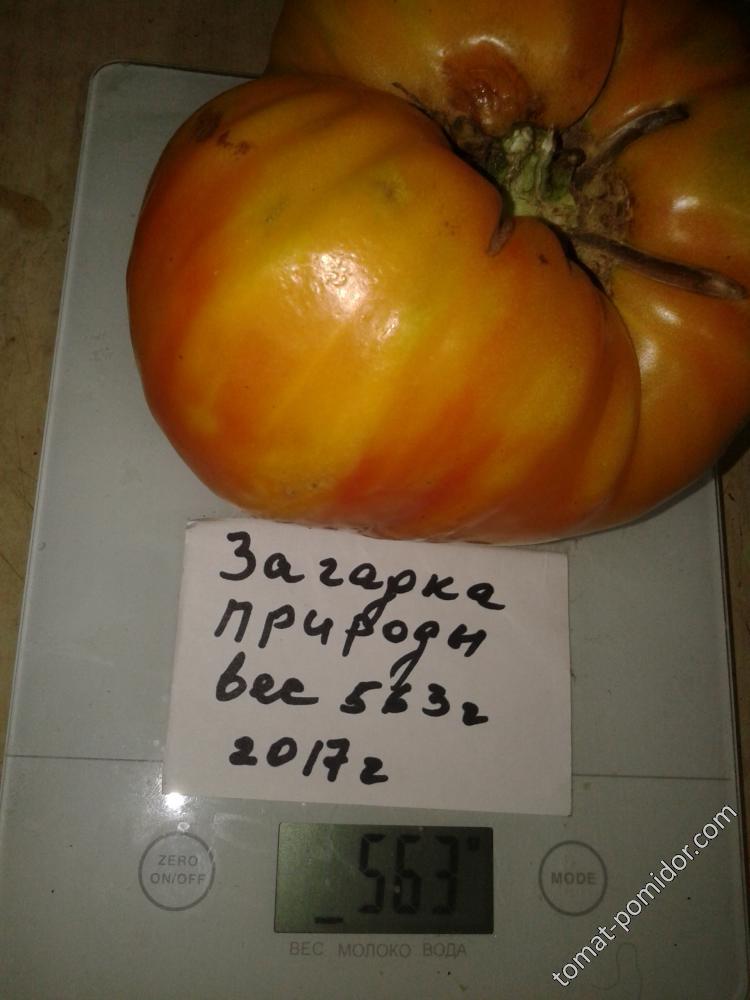 Загадка
природы
вес 563г
2017г
ZERO
ON/OFF
563
MODE
ВЕС МОЛОКО ВОДА
tomat-pomidor.com